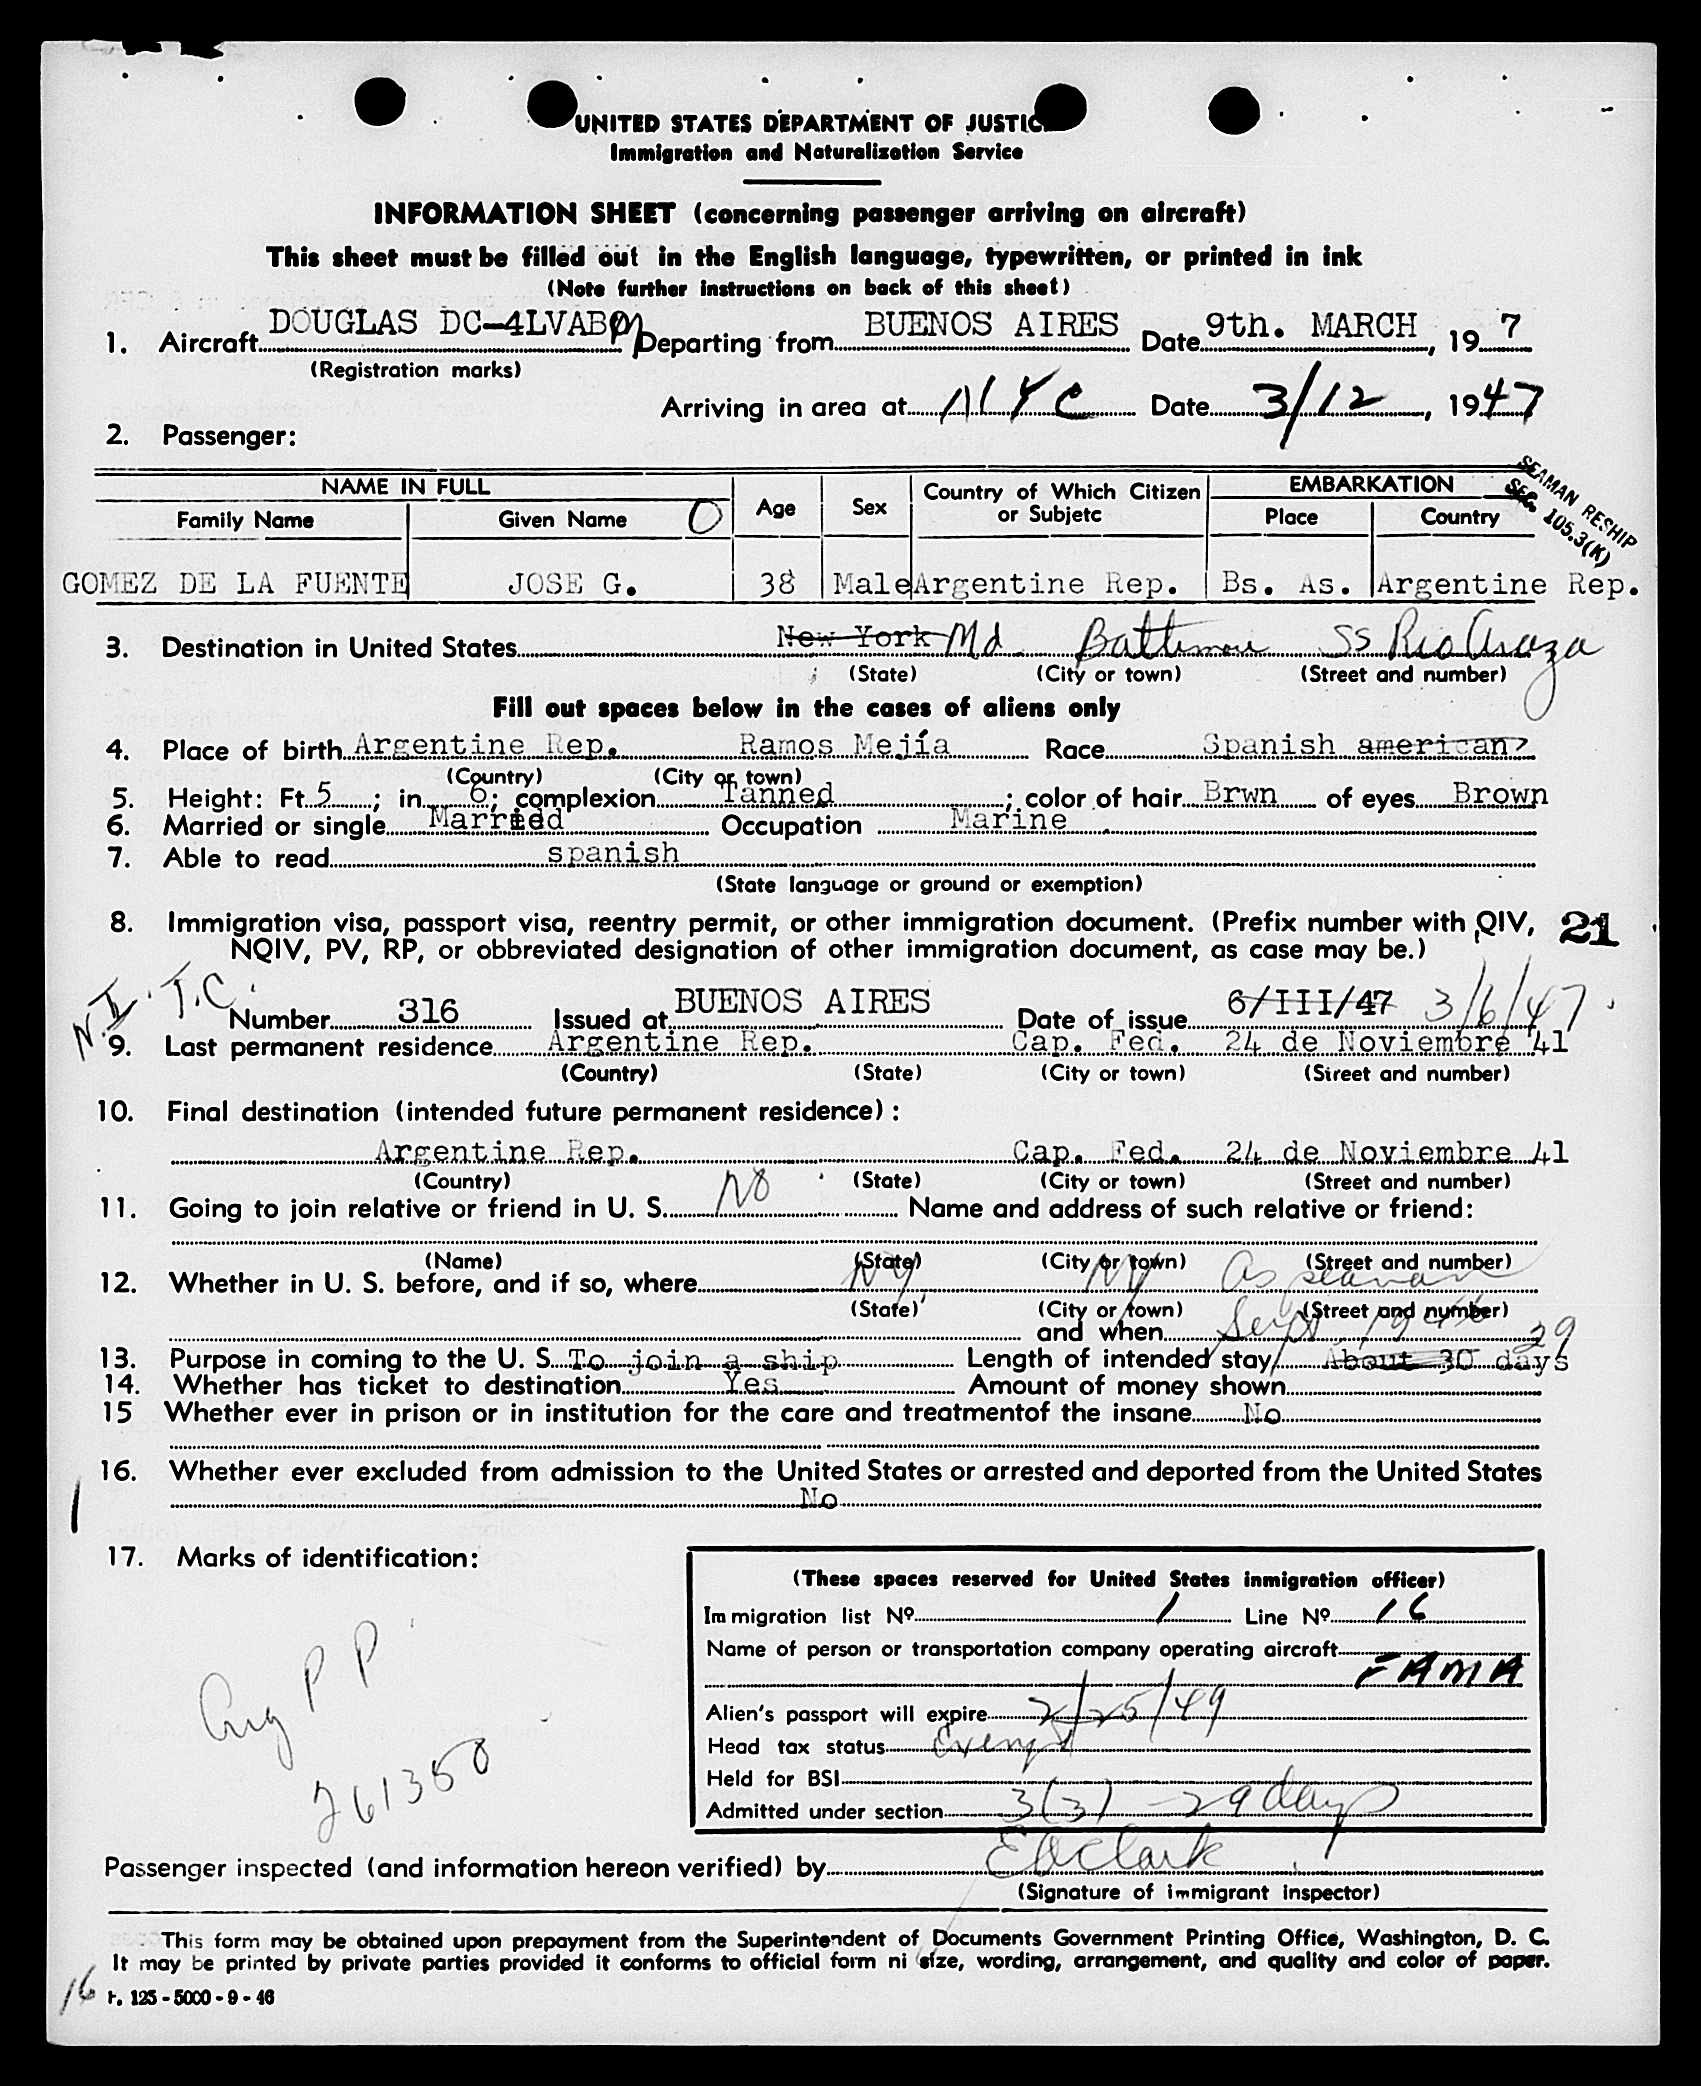 UNITED STATES DEPARTMENT OF JUSTIC
Immigration and Naturalization Service
INFORMATION SHEET (concerning passenger arriving on aircraft)
This sheet must be filled out in the English language, typewritten, or printed in ink
(Note further instructions on back of this sheet)
1. Aircraft DOUGLAS DC-4LVABM Departing from BUENOS AIRES Date 9th. MARCH, 19 7
(Registration marks)
Arriving in area at NYC Date 3/12, 1947
2. Passenger:
SEAMAN RESHIP
SEC. 105.3(K)
NAME IN FULL Age Sex Country of Which Citizen EMBARKATION
or Subjetc
Family Name Given Name O Place Country
GOMEZ DE LA FUENTE JOSE G. 38 Male Argentine Rep. Bs. As. Argentine Rep.
3. Destination in United States New York Md. Baltimore SS Rio Araza
(State) (City or town) (Street and number)
Fill out spaces below in the cases of aliens only
4. Place of birth Argentine Rep. Ramos Mejía Race Spanish american
(Country) (City or town)
5. Height: Ft. 5; in. 6; complexion Tanned; color of hair Brwn of eyes Brown
6. Married or single Married Occupation Marine
7. Able to read spanish
(State language or ground or exemption)
8. Immigration visa, passport visa, reentry permit, or other immigration document. (Prefix number with QIV, 21
NQIV, PV, RP, or obbreviated designation of other immigration document, as case may be.)
N.I.T.C.
Number 316 Issued at BUENOS AIRES Date of issue 6/III/47 3/6/47
9. Last permanent residence Argentine Rep. Cap. Fed. 24 de Noviembre 41
(Country) (State) (City or town) (Street and number)
10. Final destination (intended future permanent residence):
Argentine Rep. Cap. Fed. 24 de Noviembre 41
(Country) (State) (City or town) (Street and number)
11. Going to join relative or friend in U. S. No Name and address of such relative or friend:
(Name) (State) (City or town) (Street and number)
12. Whether in U. S. before, and if so, where NY NY As seaman
(State) (City or town) (Street and number)
and when Sept. 19
13. Purpose in coming to the U. S. To join a ship Length of intended stay About 30 days 29
14. Whether has ticket to destination Yes Amount of money shown
15 Whether ever in prison or in institution for the care and treatmentof the insane No
16. Whether ever excluded from admission to the United States or arrested and deported from the United States
No
17. Marks of identification:
Arg P P
261350
(These spaces reserved for United States inmigration officer)
Immigration list Nº 1 Line Nº 16
Name of person or transportation company operating aircraft
FAMA
Alien's passport will expire 2/25/49
Head tax status Exempt
Held for BSI
Admitted under section 3(3) - 29 days
Passenger inspected (and information hereon verified) by E Clark
(Signature of immigrant inspector)
This form may be obtained upon prepayment from the Superintendent of Documents Government Printing Office, Washington, D. C.
It may be printed by private parties provided it conforms to official form ni size, wording, arrangement, and quality and color of paper.
16 F. 125 - 5000 - 9 - 46